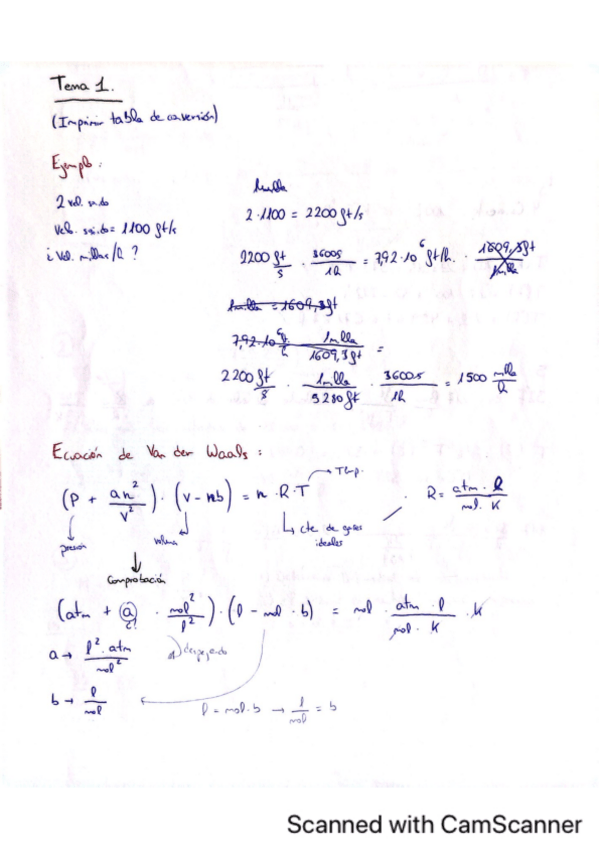 Tema 1.
(Imprimir tabla de conversión)
Ejemplo:
2 vel. sonido
Vel. sonido = 1100 ft/s
¿Vel. millas/h?
1 milla
2·1100 = 2200 ft/s
2200 ft/s · 3600s/1h = 7,92·10^6 ft/h · 1609,3ft/1milla
1 milla = 1609,3 ft
7,92·10^6 ft/h · 1milla/1609,3ft =
2200 ft/s · 1milla/5280ft · 3600s/1h = 1500 milla/h
Ecuación de Van der Waals:
(P + an²/V²) · (V - nb) = n · R · T → Temp.
R = atm · l / mol · K
presión
volumen
cte de gases ideales
Comprobación
(atm + a · mol²/l²) · (l - mol · b) = mol · atm · l / mol · K · K
¿?
a → l² · atm / mol²
despejando
b → l/mol
l = mol·b → l/mol = b
Scanned with CamScanner